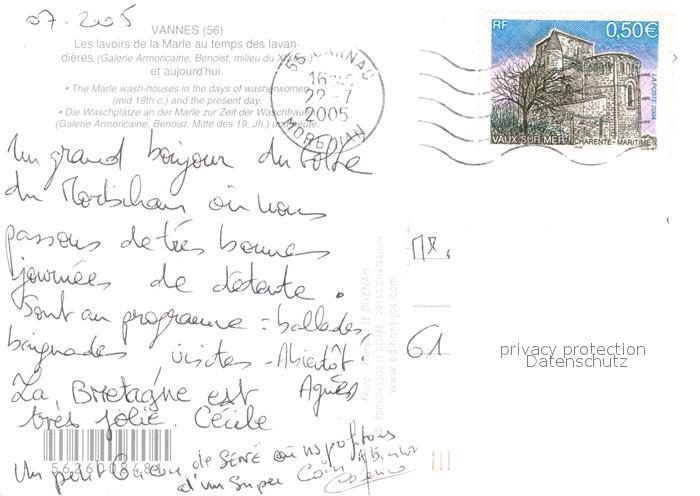 07-2005
VANNES (56)
Les lavoirs de la Marle au temps des lavan-
dières (Galerie Armoricaine, Benoist, milieu du
et aujourd'hui.
• The Marle wash-houses in the days of washerwomen
(mid 19th c.) and the present day.
• Die Waschplätze an der Marle zur Zeit der Waschfrauen
(Galerie Armoricaine, Benoist, Mitte des 19. Jh.) und heute.
56 CARNAC
22-7
2005
MORBIHAN
RF
0,50€
LA POSTE 2004
VAUX SUR MER CHARENTE-MARITIME
Un grand bonjour du Golfe
du Morbihan où nous
passons de très bonnes
journées de détente.
Sont au programme : ballades,
baignades, visites - A bientôt !
Agnès
La Bretagne est
très jolie. Cécile
Un petit coucou de SENE où ns profitons
d'un super coin A bientôt
Mr.
61
www.editionsjos.com
privacy protection
Datenschutz